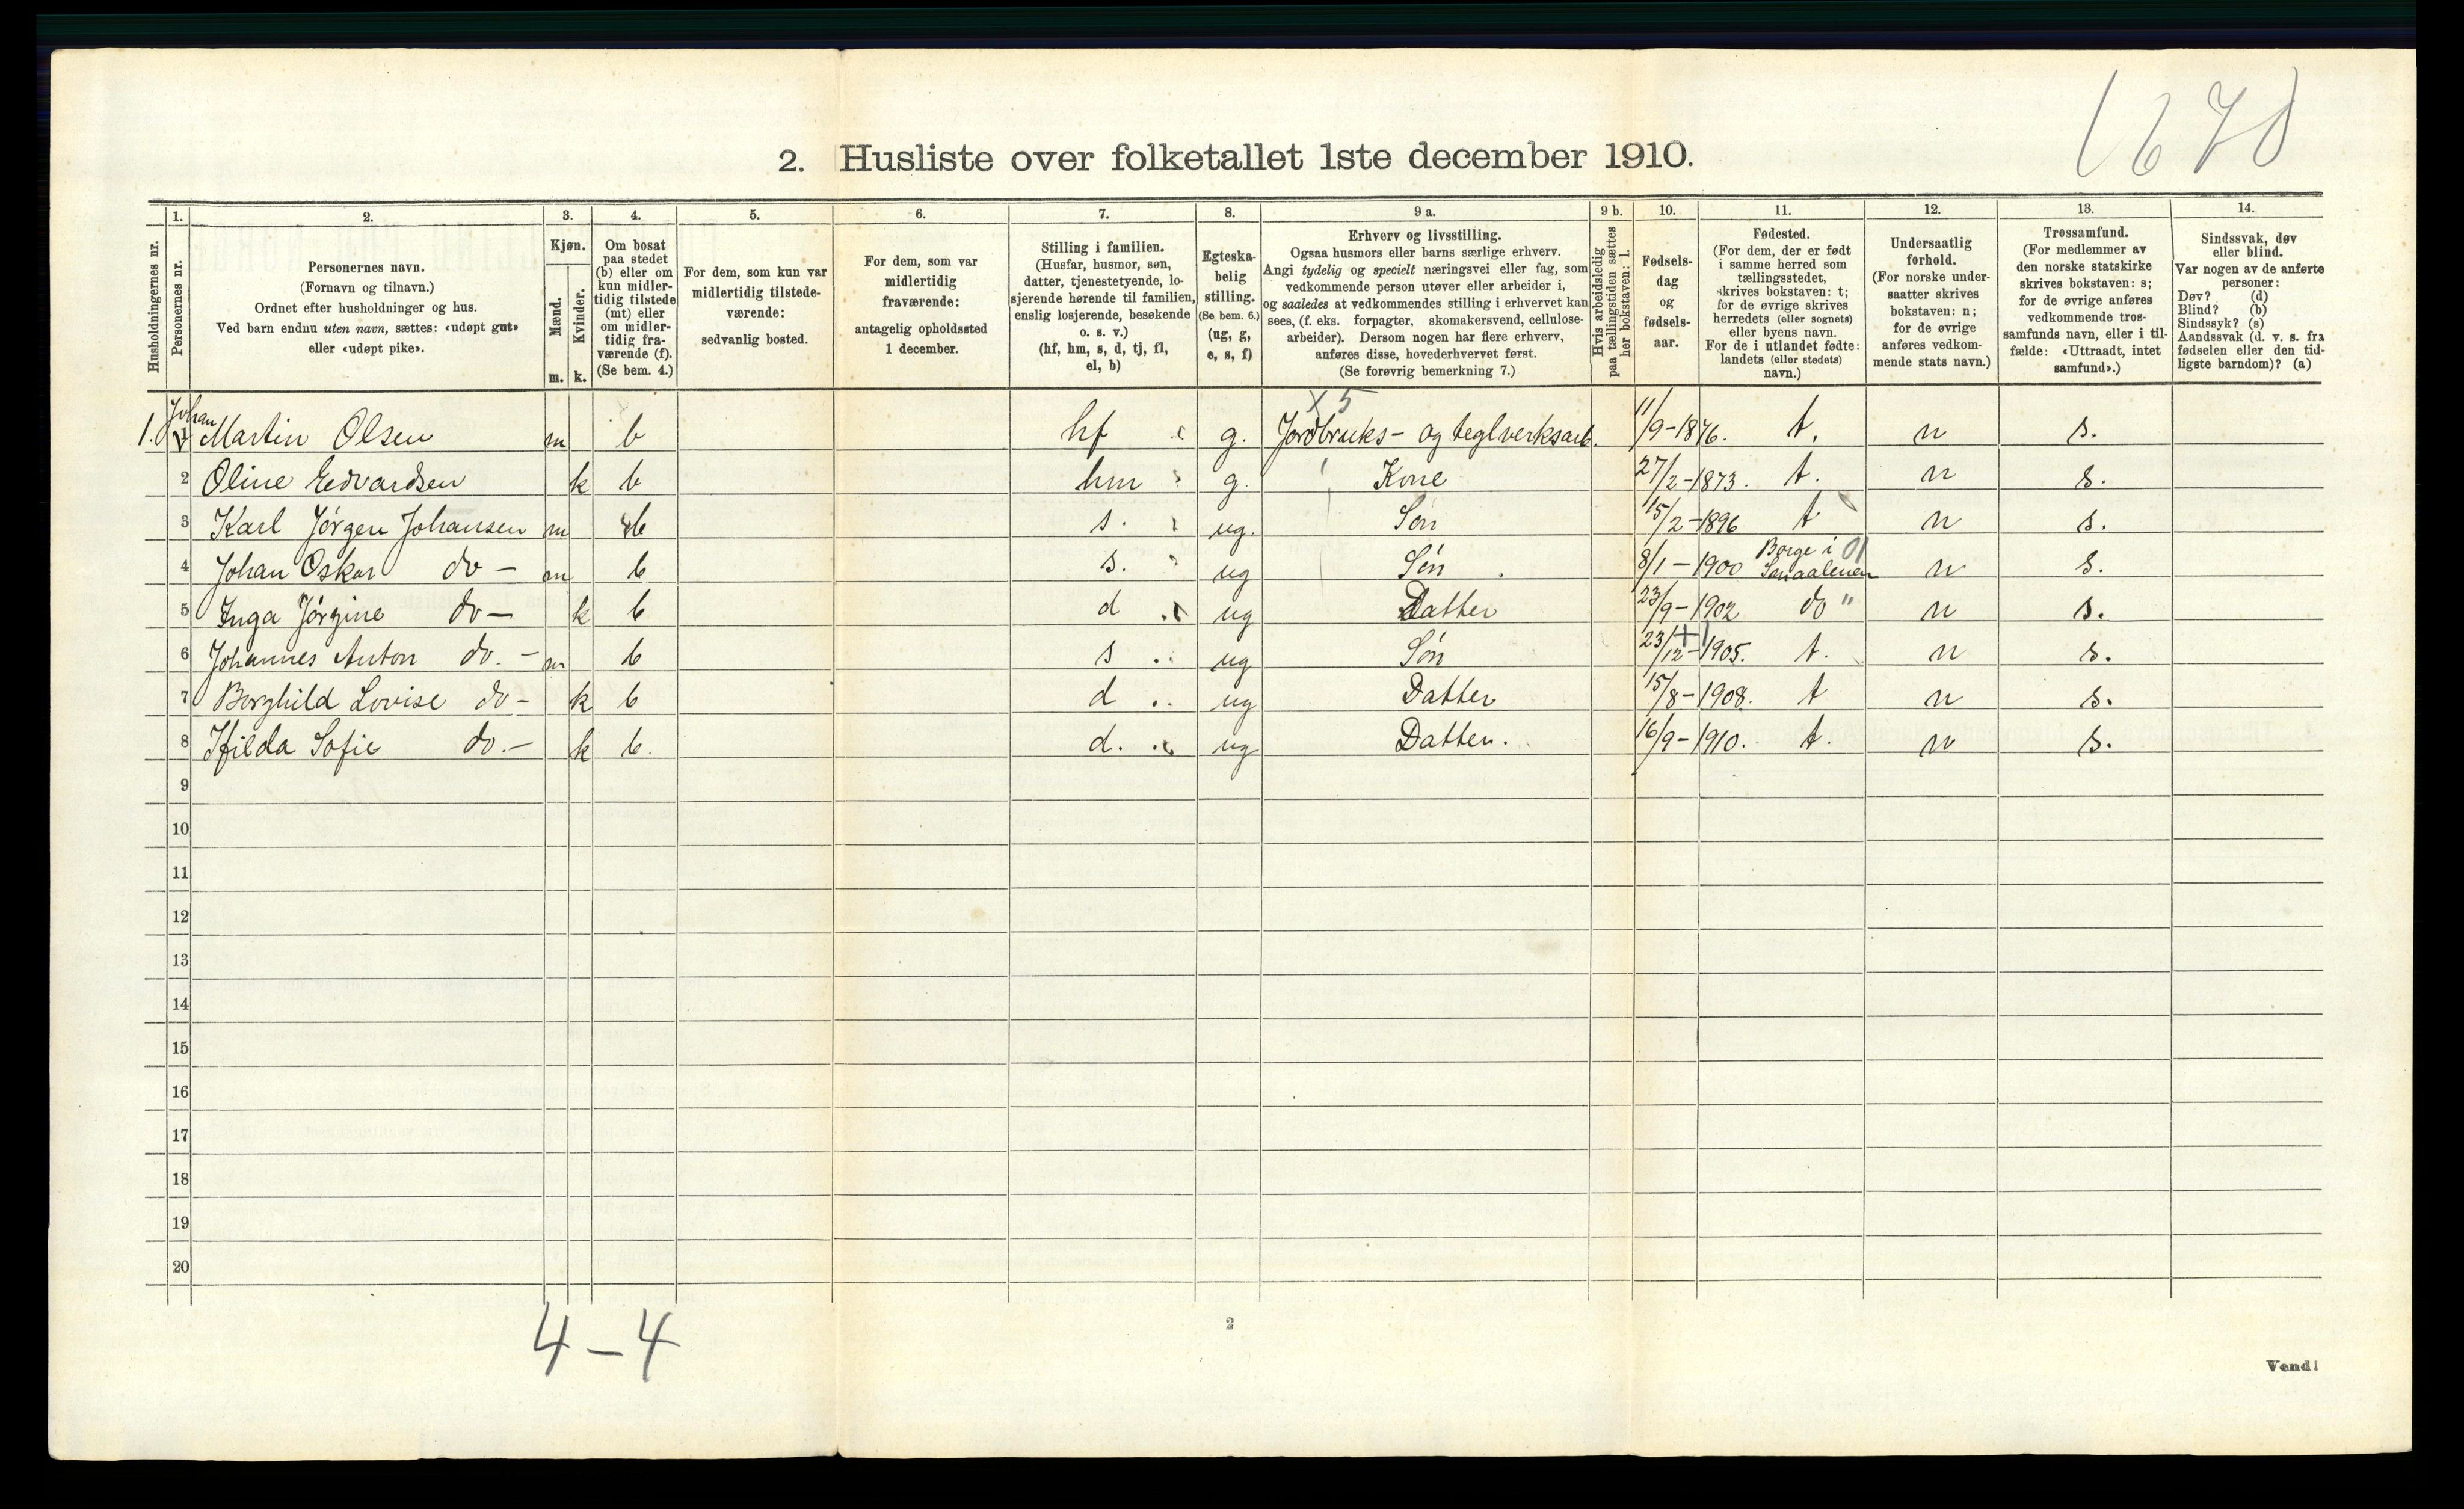 1670
2. Husliste over folketallet 1ste december 1910.
1. 2. 3. 4. 5. 6. 7. 8. 9 a. 9 b. 10. 11. 12. 13. 14.
Husholdningernes nr.
Personernes nr.
Personernes navn.
(Fornavn og tilnavn.)
Ordnet efter husholdninger og hus.
Ved barn endnu uten navn, sættes: «udøpt gut»
eller «udøpt pike».
Kjøn.
Mænd.
Kvinder.
m. k.
Om bosat
paa stedet
(b) eller om
kun midler-
tidig tilstede
(mt) eller
om midler-
tidig fra-
værende (f).
(Se bem. 4.)
For dem, som kun var
midlertidig tilstede-
værende:
sedvanlig bosted.
For dem, som var
midlertidig
fraværende:
antagelig opholdssted
1 december.
Stilling i familien.
(Husfar, husmor, søn,
datter, tjenestetyende, lo-
sjerende hørende til familien,
enslig losjerende, besøkende
o. s. v.)
(hf, hm, s, d, tj, fl,
el, b)
Egteska-
belig
stilling.
(Se bem. 6.)
(ug, g,
e, s, f)
Erhverv og livsstilling.
Ogsaa husmors eller barns særlige erhverv.
Angi tydelig og specielt næringsvei eller fag, som
vedkommende person utøver eller arbeider i,
og saaledes at vedkommendes stilling i erhvervet kan
sees, (f. eks. forpagter, skomakersvend, cellulose-
arbeider). Dersom nogen har flere erhverv,
anføres disse, hovederhvervet først.
(Se forøvrig bemerkning 7.)
Hvis arbeidsledig
paa tællingstiden sættes
her bokstaven: l.
Fødsels-
dag
og
fødsels-
aar.
Fødested.
(For dem, der er født
i samme herred som
tællingsstedet,
skrives bokstaven: t;
for de øvrige skrives
herredets (eller sognets)
eller byens navn.
For de i utlandet fødte:
landets (eller stedets)
navn.)
Undersaatlig
forhold.
(For norske under-
saatter skrives
bokstaven: n;
for de øvrige
anføres vedkom-
mende stats navn.)
Trossamfund.
(For medlemmer av
den norske statskirke
skrives bokstaven: s;
for de øvrige anføres
vedkommende tros-
samfunds navn, eller i til-
fælde: «Uttraadt, intet
samfund».)
Sindssvak, døv
eller blind.
Var nogen av de anførte
personer:
Døv? (d)
Blind? (b)
Sindssyk? (s)
Aandssvak (d. v. s. fra
fødselen eller den tid-
ligste barndom)? (a)
Johan X 5
1. 1 Martin Olsen m b hf g. Jordbruks- og teglverksarb. 11/9-1876. t. n s.
2 Oline Edvardsen k b hm g. Kone 27/2-1873. t. n s.
3 Karl Jörgen Johansen m b s. ug. Søn 15/2-1896 t n s.
Borge i 01
4 Johan Oskar do - m b s. ug Søn. 8/1-1900 Smaalenen n s.
5 Inga Jörgine do - k b d ug Datter 23/9-1902 do " n s.
6 Johannes Anton do. - m b s ug Søn 23/12-1905. t. n s.
7 Borghild Lovise do - k b d ug Datter 15/8-1908. t n s.
8 Hilda Sofie do. - k b. d. ug Datter. 16/9-1910. t. n s.
9
10
11
12
13
14
15
16
17
18
19
20
4 - 4
2
Vend!